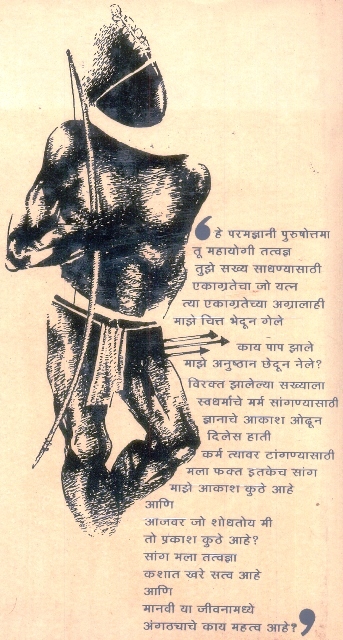 ‘हे परमज्ञानी पुरुषोत्तमा
तू महायोगी तत्वज्ञ
तुझे सख्य साधण्यासाठी
एकाग्रतेचा जो यत्न
त्या एकाग्रतेच्या अग्रालाही
माझे चित्त भेदून गेले
काय पाप झाले
माझे अनुष्ठान छेदून नेले?
विरक्त झालेल्या सख्याला
स्वधर्माचे मर्म सांगण्यासाठी
ज्ञानाचे आकाश ओढून
दिलेस हाती
कर्म त्यावर टांगण्यासाठी
मला फक्त इतकेच सांग
माझे आकाश कुठे आहे
आणि
आजवर जो शोधतोय मी
तो प्रकाश कुठे आहे?
सांग मला तत्वज्ञा
कशात खरे सत्व आहे
आणि
मानवी या जीवनामध्ये
अंगठ्याचे काय महत्व आहे?’